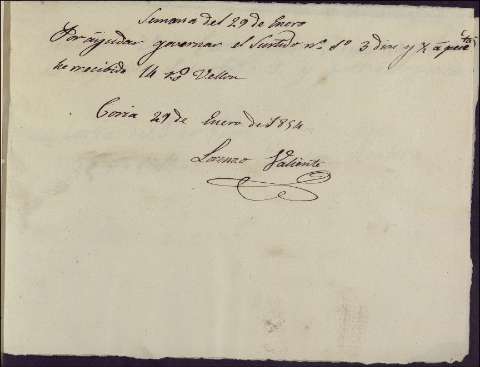 Semana del 29 de Enero
Por ayudar governar el Surtido nº 1º 3 dias y ½ á
he recibido 14 rs Vellon
Coria 29 de Enero de 1854
Lorenzo Valiente